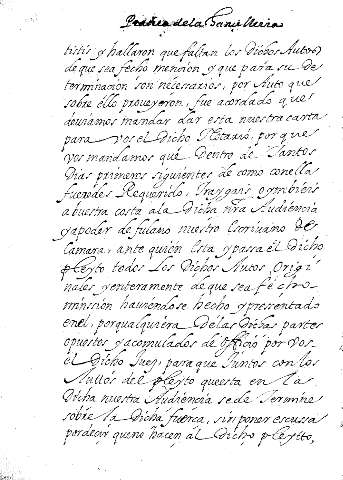 Practica de la Canzilleria
tistis y hallaron que faltan los Dichos Autos,
de que sea fecho mencion y que para su De
terminacion son necesarios, por Auto que
sobre ello proueyeron, fue acordado que
deuiamos mandar dar esta nuestra carta
para vos el Dicho Notario, por que
vos mandamos que Dentro de Tantos
Dias primeros siguientes de como conella
fueredes Requerido, Traygais o ymbieis
a buestra costa ala Dicha nra Audiencia
y a poder de fulano nuestro Escriuano de
Camara, ante quien Esta y passa el Dicho
Pleyto todos Los Dichos Autos Origi
nales y enteramente de que sea fecho
mission hauiendose hecho y presentado
en el, por qualquiera De las Dichas partes
o puestos y acomulados de officio por vos
el Dicho Juez, para que Juntos con los
Auttos del Pleyto questa en la
Dicha nuestra Audiencia se de Termine
sobre la Dicha fuerça, sin poner escussa
por decir que no hacen al Dicho Pleyto,